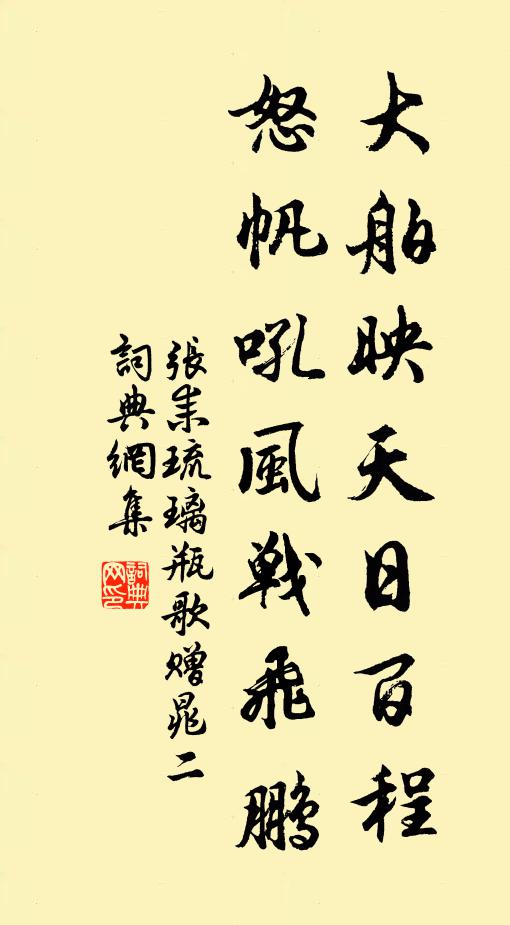 大舶映天日百程
怒帆吼風戰飛鵬
張耒琉璃瓶歌贈晁二
詞典網集
詞典網印